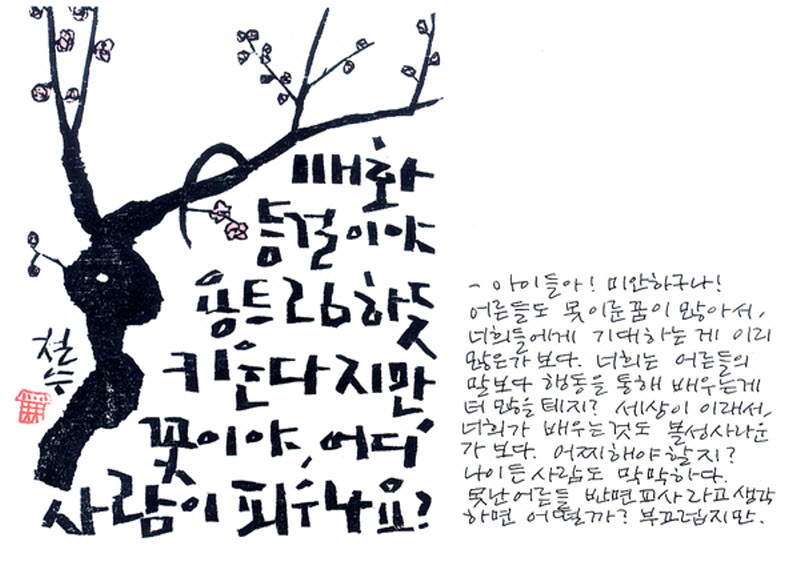 매화
등걸이야
용트림하듯
키운다지만
꽃이야, 어디
사람이 피우나요?
철수
- 아이들아! 미안하구나!
어른들도 못 이룬 꿈이 많아서,
너희들에게 기대하는 게 이리
많은가 보다. 너희는 어른들의
말보다 행동을 통해 배우는게
더 많을 테지? 세상이 이래서,
너희가 배우는것도 볼성사나운
가 보다. 어찌해야 할 지?
나이든 사람도 막막하다.
못난 어른들 반면교사라고 생각
하면 어떨까? 부끄럽지만.